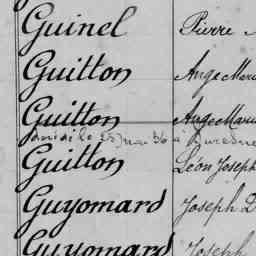 Guinel Pierre
Guitton Ange Marie
Guitton Ange Marie
le 25 mai 36 à
Guitton Léon Joseph
Guyomard Joseph
Guyomard Joseph